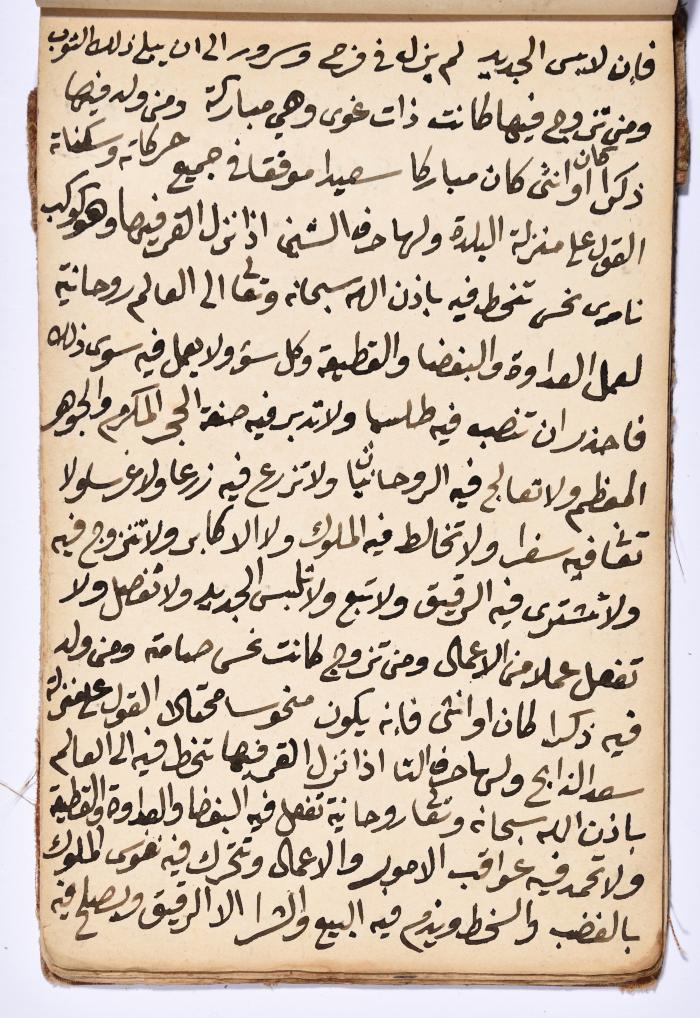 فإن لابس الجديد لم يزل في فرح وسرور الى ان يبلي ذلك الثوب
ومن تزوج فيها كانت ذات غوى وهي مباركة ومن ولد فيها
ذكرا كان او انثى كان مباركا سعيدا موفقا في جميع حركاته وسكناته
القول على منزلة البلدة ولها حرف الشين اذا نزل القمر فيها وهو كوكب
نارى نحس تنحط فيه باذن الله سبحانه وتعالى الى العالم روحانية
لعمل العداوة والبغضا والقطيعة وكل سؤ ولا يعمل فيه سوى ذلك
فاحذر ان تنصب فيه طلسما ولا تدبر فيه صنعة الحجر المكرم والجوهر
المعظم ولا تعالج فيه الروحانيات ولا تزرع فيه زرعا ولا غرس ولا
فيه سفرا ولا تخالط فيه الملوك ولا الاكابر ولا تتزوج فيه
ولا تشترى فيه الرقيق ولا تبع ولا تلبس الجديد ولا تفصل ولا
تفعل عملا من الاعمال ومن تزوج كانت نحس ومن ولد
فيه ذكرا كان او انثى فإنه يكون منحوسا محتالا القول على منزلة
سعد الذابح ولها حرف التا اذا نزل القمر فيها تنحط فيه الى العالم
باذن الله سبحانه وتعا روحانية تفعل فيه البغضا والعداوة والقطيعة
ولا تحمد فيه عواقب الامور والاعمال وتتحرك فيه نفوس الملوك
بالغضب والسخط ويذم فيه البيع والشرا الا الرقيق ويصلح فيه